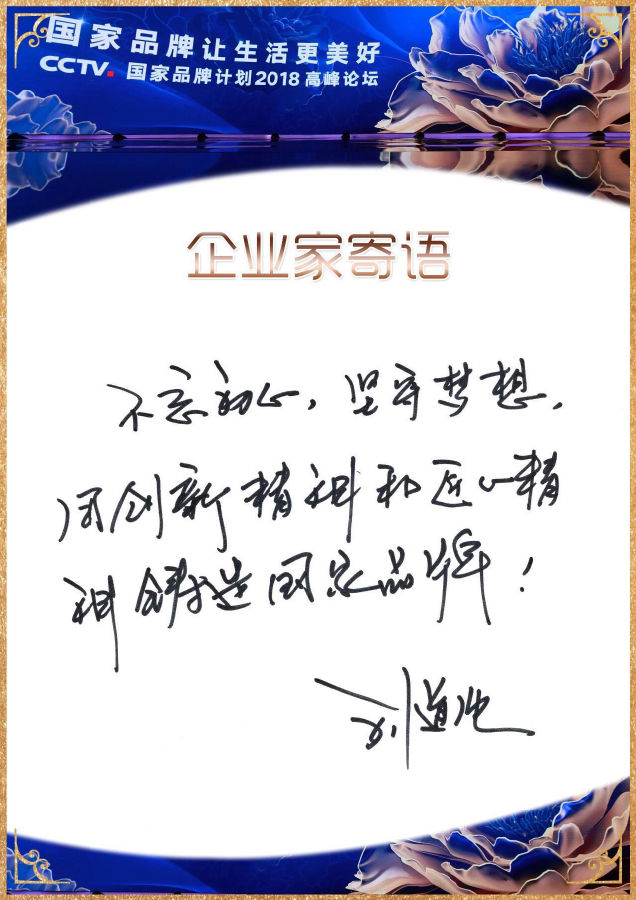 国家品牌让生活更美好
CCTV. 国家品牌计划2018高峰论坛
企业家寄语
不忘初心，坚守梦想，
用创新精神和匠心精
神铸造国家品牌！
刘道